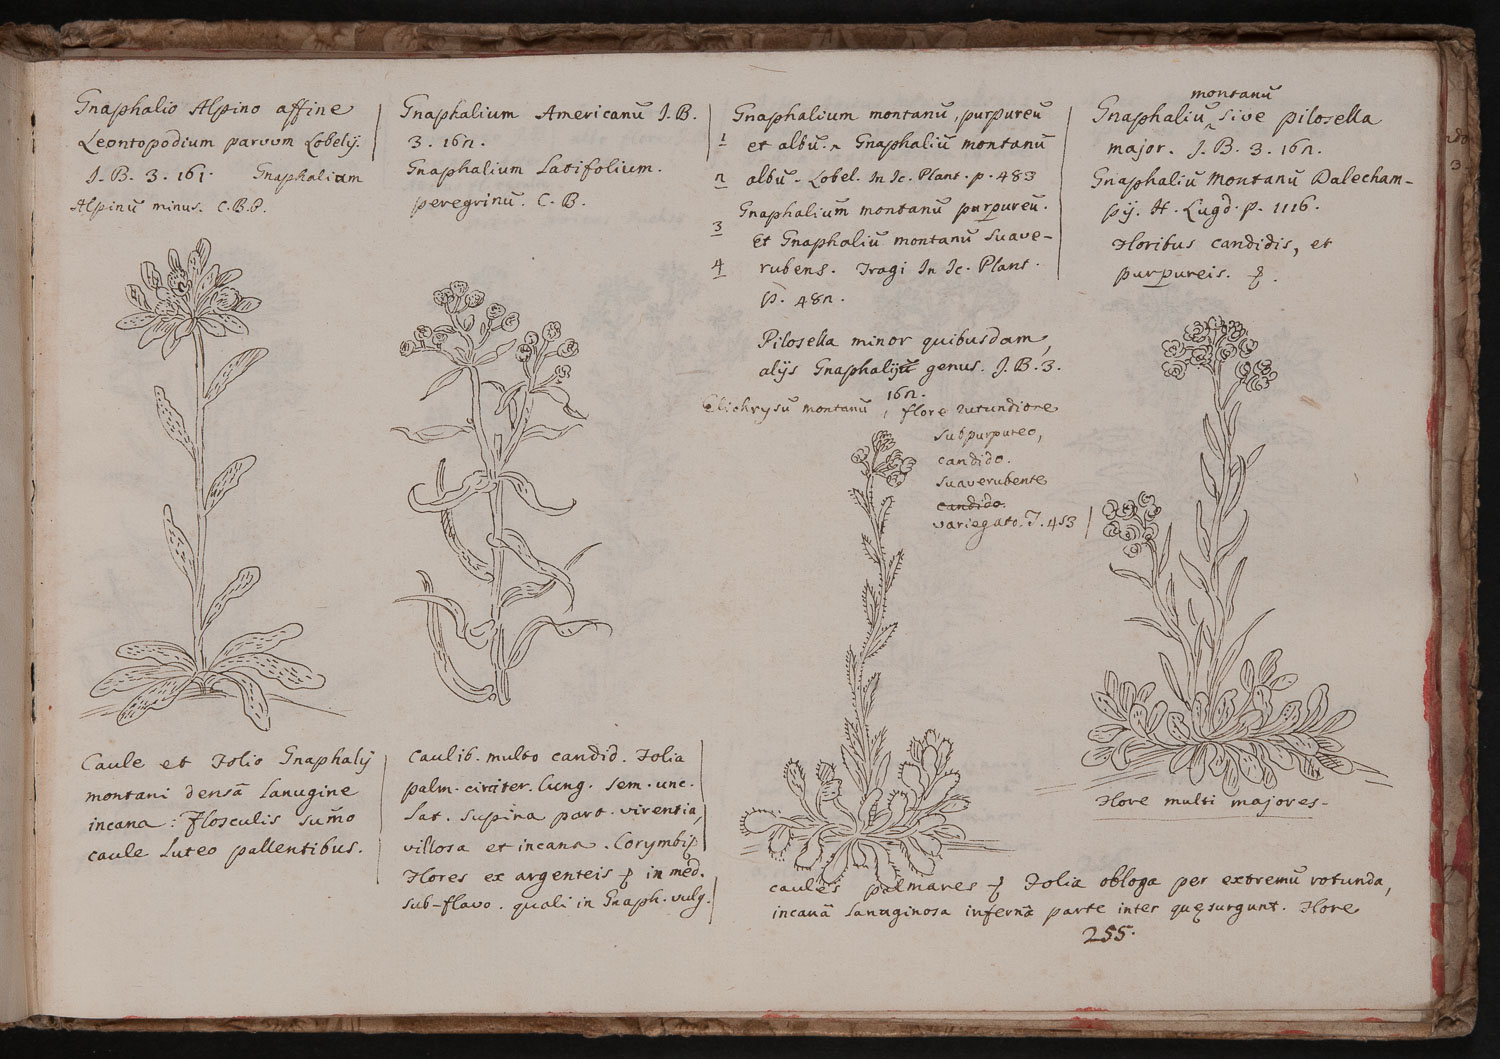 Gnaphalio Alpino affine
Leontopodium parvum Lobelij.
J. B. 3. 161. Gnaphalium
Alpinū minus. C. B. P.
Gnaphalium Americanū J. B.
3. 162.
Gnaphalium Latifolium.
peregrinū. C. B.
Gnaphalium montanū, purpureū
1 et albū. 2 Gnaphaliū montanū
2 albū. Lobel. In Ic. Plant. p. 483
Gnaphalium montanū purpureū.
3 Et Gnaphaliū montanū suave-
4 rubens. Tragi In Ic. Plant.
p. 482.
Pilosella minor quibusdam,
alijs Gnaphalij genus. J. B. 3.
162.
Elichrysū montanū, flore rutundiore
subpurpureo,
candido.
suaverubente
candido.
variegato. T. 453
montanū
Gnaphaliū sive pilosella
major. J. B. 3. 162.
Gnaphaliū Montanū Dalecham-
pij. H. Lugd. p. 1116.
Floribus candidis, et
purpureis.
Caule et Folio Gnaphalij
montani densā Lanugine
incana: flosculis sum̄o
caule Luteo pallentibus.
Caulib. multo candid. Folia
palm. circiter. Lung. sem. unc.
Lat. supina part. virentia,
villosa et incana. Corymbi
Flores ex argenteis & in med.
sub-flavo. quali in Gnaph. vulg.
Flore multi majores.
caules palmares & Folia obloga per extremū rotunda,
incanā Lanuginosa infernā parte inter quę surgunt. Flore
255.